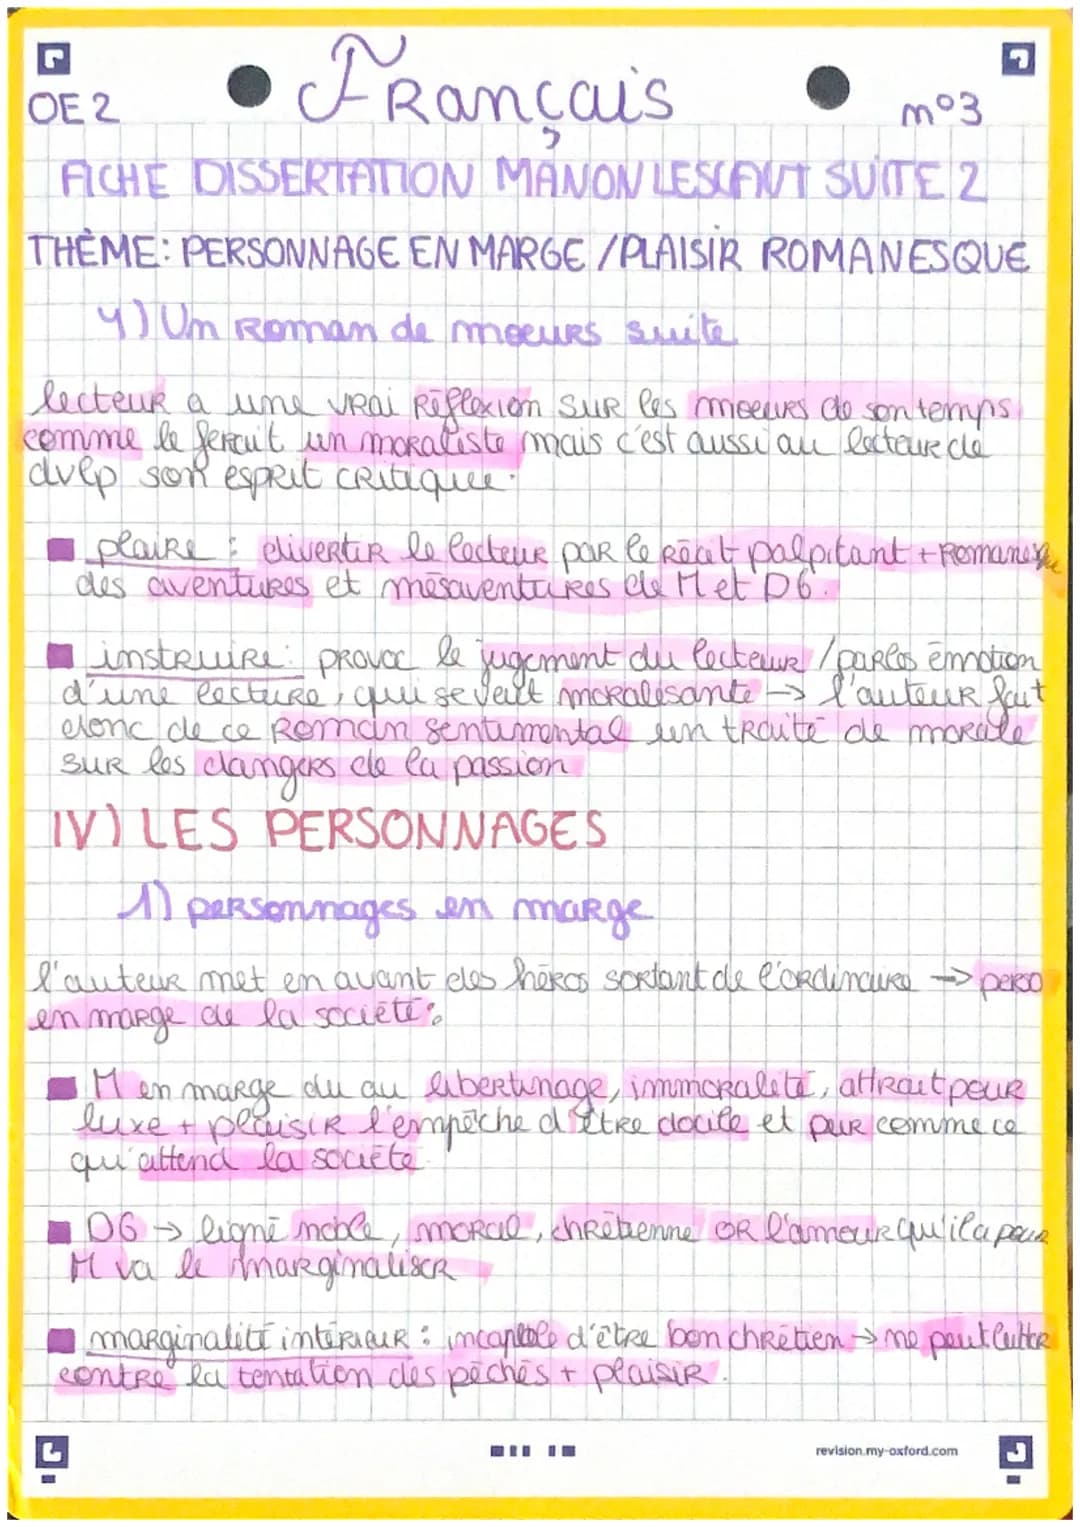 OE 2
Français
n°3
FICHE DISSERTATION MANON LESCAUT SUITE 2
THÈME: PERSONNAGE EN MARGE / PLAISIR ROMANESQUE
4) Un Roman de moeurs suite
lecteur a une vrai Réflexion sur les moeurs de son temps
comme le ferait un moraliste mais c'est aussi au lecteur de
dvlp son esprit critique.
plaire : divertir le lecteur par le Récit palpitant + Romanesque
des aventures et mésaventures de M et DG.
instruire : provoc le jugement du lecteur / par les émotion
d'une lecture, qui se veut moralisante → l'auteur fait
donc de ce Roman sentimental un traité de morale
sur les dangers de la passion
IV) LES PERSONNAGES
1) personnages en marge
l'auteur met en avant des héros sortant de l'ordinaire → perso
en marge de la société :
M en marge du au libertinage, immoralité, attrait pour
luxe + plaisir l'empêche d'être docile et pur comme ce
qu'attend la société
DG → ligné noble, moral, chrétienne OR l'amour qu'il a pour
M va le marginaliser
marginalité intérieur : incapable d'être bon chrétien → ne peut lutter
contre la tentation des péchés + plaisir.
revision.my-oxford.com